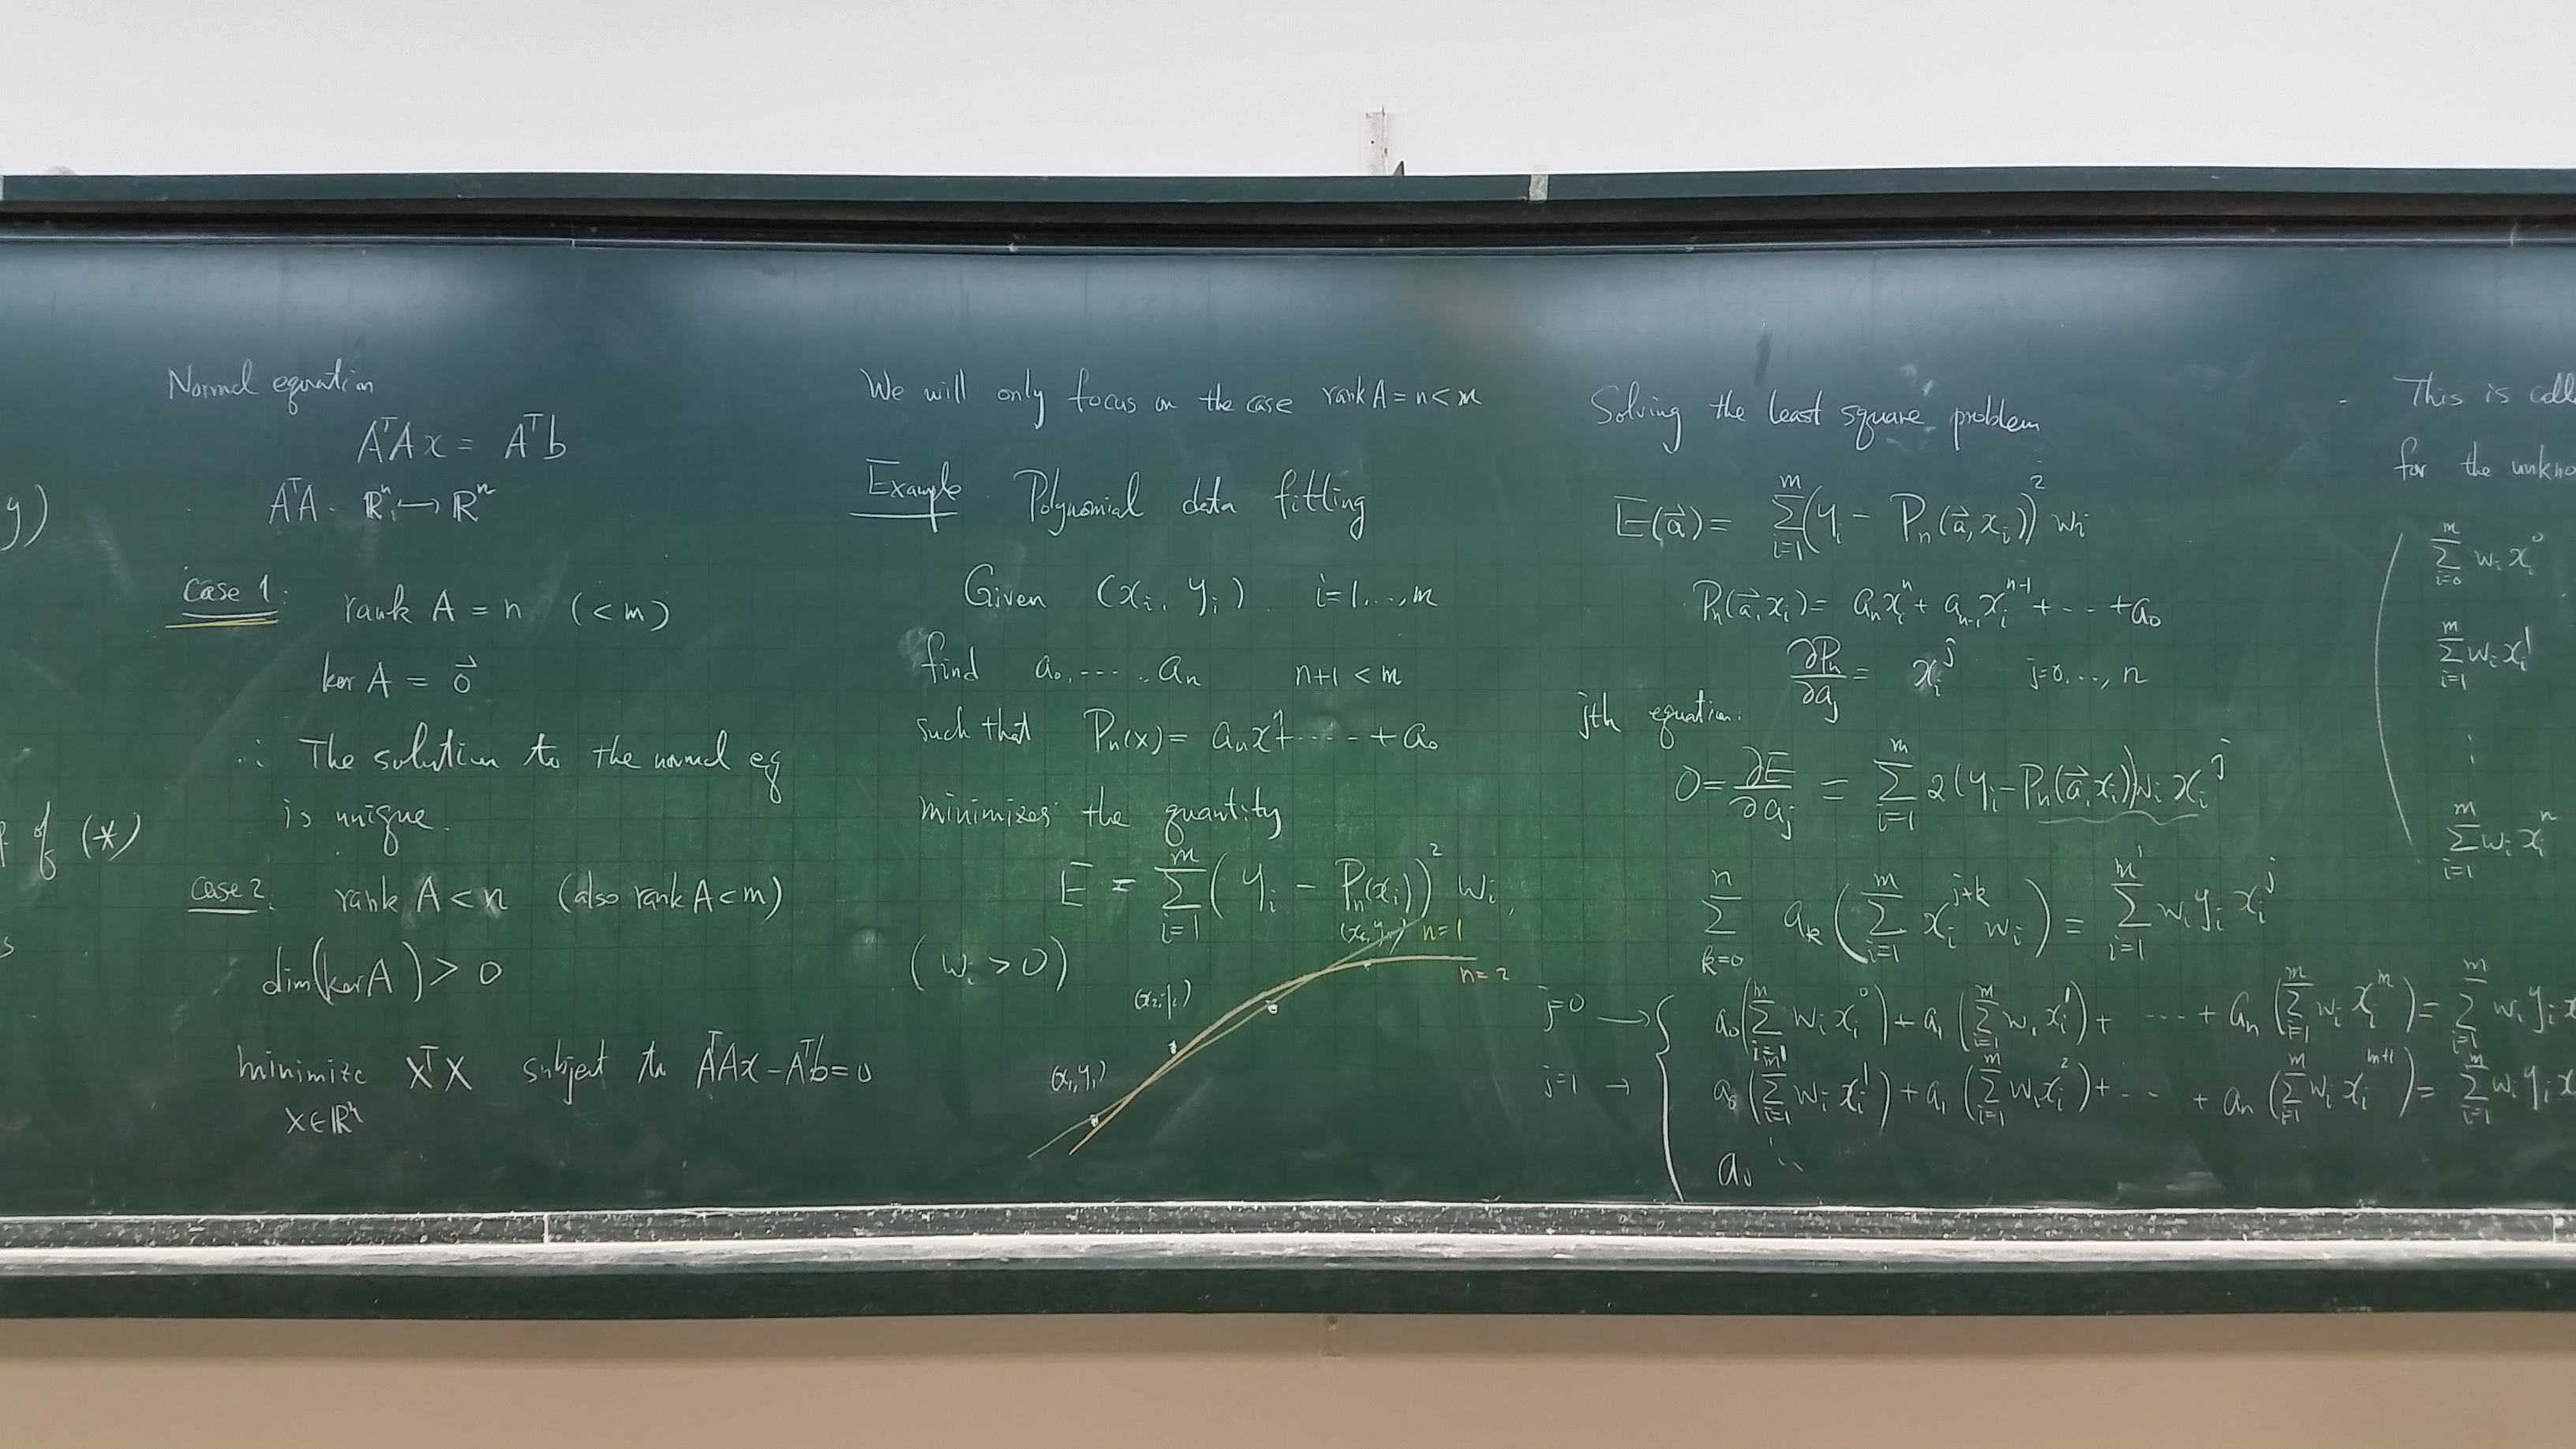 y)
f of (*)
s
Normal equation
AᵀAx = Aᵀb
AᵀA : ℝⁿ → ℝⁿ
Case 1: rank A = n (< m)
ker A = 0⃗
∴ The solution to the normal eq
is unique.
Case 2: rank A < n (also rank A < m)
dim(ker A) > 0
minimize xᵀx subject to AᵀAx − Aᵀb = 0
x∈ℝⁿ
We will only focus on the case rank A = n < m
Example Polynomial data fitting
Given (xᵢ, yᵢ) i=1,...,m
find a₀, ..... aₙ n+1 < m
such that Pₙ(x) = aₙxⁿ + ..... + a₀
minimizes the quantity
E = ∑_{i=1}^{m} (yᵢ − Pₙ(xᵢ))² wᵢ,
(wᵢ > 0)
n=1
n=2
(x₁, y₁)
Solving the least square problem
E(a⃗) = ∑_{i=1}^{m} (yᵢ − Pₙ(a⃗, xᵢ))² wᵢ
Pₙ(a⃗, xᵢ) = aₙxᵢⁿ + aₙ₋₁xᵢⁿ⁻¹ + ... + a₀
∂Pₙ/∂aⱼ = xᵢʲ j=0,..., n
jth equation:
0 = ∂E/∂aⱼ = ∑_{i=1}^{m} 2(yᵢ − Pₙ(a⃗, xᵢ))wᵢ xᵢʲ
∑_{k=0}^{n} aₖ (∑_{i=1}^{m} xᵢ^{j+k} wᵢ) = ∑_{i=1}^{m} wᵢ yᵢ xᵢʲ
j=0 → a₀(∑_{i=1}^{m} wᵢ xᵢ⁰) + a₁(∑_{i=1}^{m} wᵢ xᵢ¹) + ... + aₙ(∑_{i=1}^{m} wᵢ xᵢᵐ) = ∑_{i=1}^{m} wᵢ yᵢ x
j=1 → a₀(∑_{i=1}^{m} wᵢ xᵢ¹) + a₁(∑_{i=1}^{m} wᵢ xᵢ²) + ... + aₙ(∑_{i=1}^{m} wᵢ xᵢᵐ⁺¹) = ∑_{i=1}^{m} wᵢ yᵢ x
a₀ ..
This is call
for the unkno
∑_{i=0}^{m} wᵢ xᵢ⁰
∑_{i=1}^{m} wᵢ xᵢ¹
⋮
∑_{i=1}^{m} wᵢ xᵢⁿ